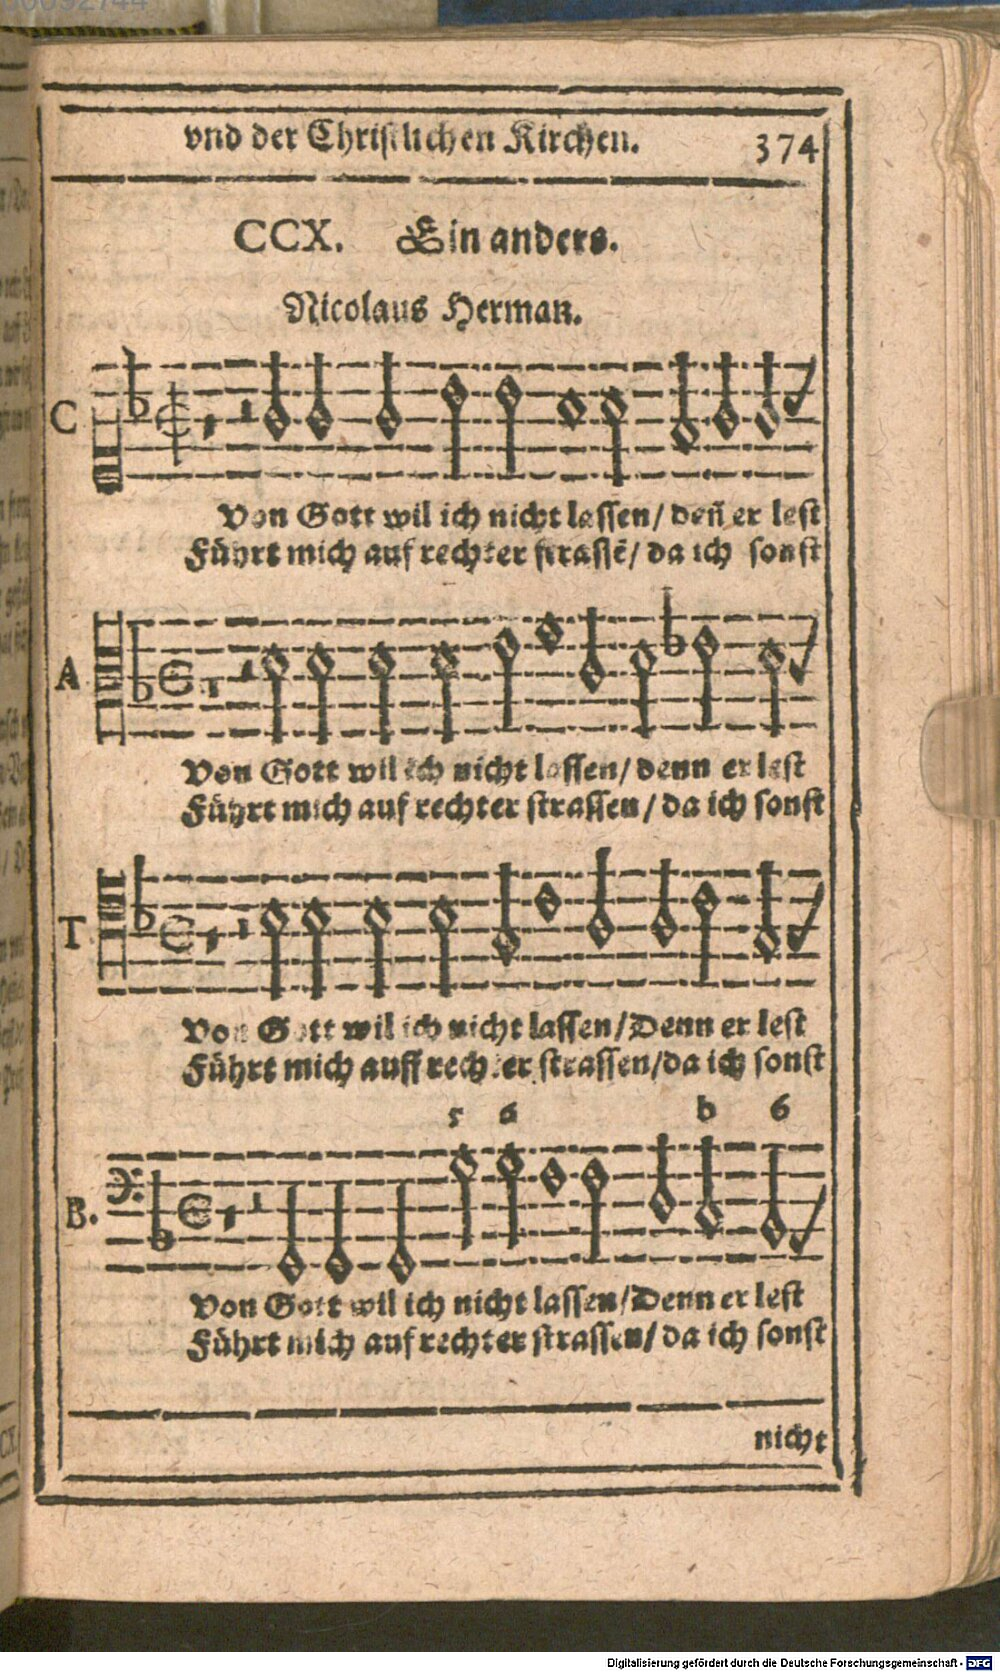 vnd der Christlichen Kirchen. 374
CCX. Ein anders.
Nicolaus Herman.
C
Von Gott wil ich nicht lassen/ den̄ er lest
Führt mich auf rechter strassē/ da ich sonst
A
Von Gott wil ich nicht lassen/ denn er lest
Führt mich auf rechter strassen/ da ich sonst
T
Von Gott wil ich nicht lassen/ Denn er lest
Führt mich auff rechter strassen/ da ich sonst
5 6 b 6
B.
Von Gott wil ich nicht lassen/ Denn er lest
Führt mich auf rechter strassen/ da ich sonst
nicht
Digitalisierung gefördert durch die Deutsche Forschungsgemeinschaft - DFG